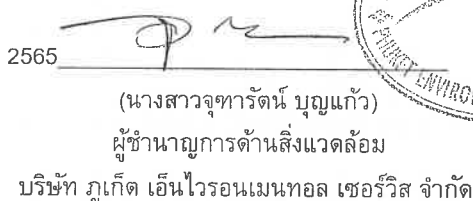 2565
(นางสาวจุฑารัตน์ บุญแก้ว)
ผู้ชำนาญการด้านสิ่งแวดล้อม
บริษัท ภูเก็ต เอ็นไวรอนเมนทอล เซอร์วิส จำกัด
PHUKET